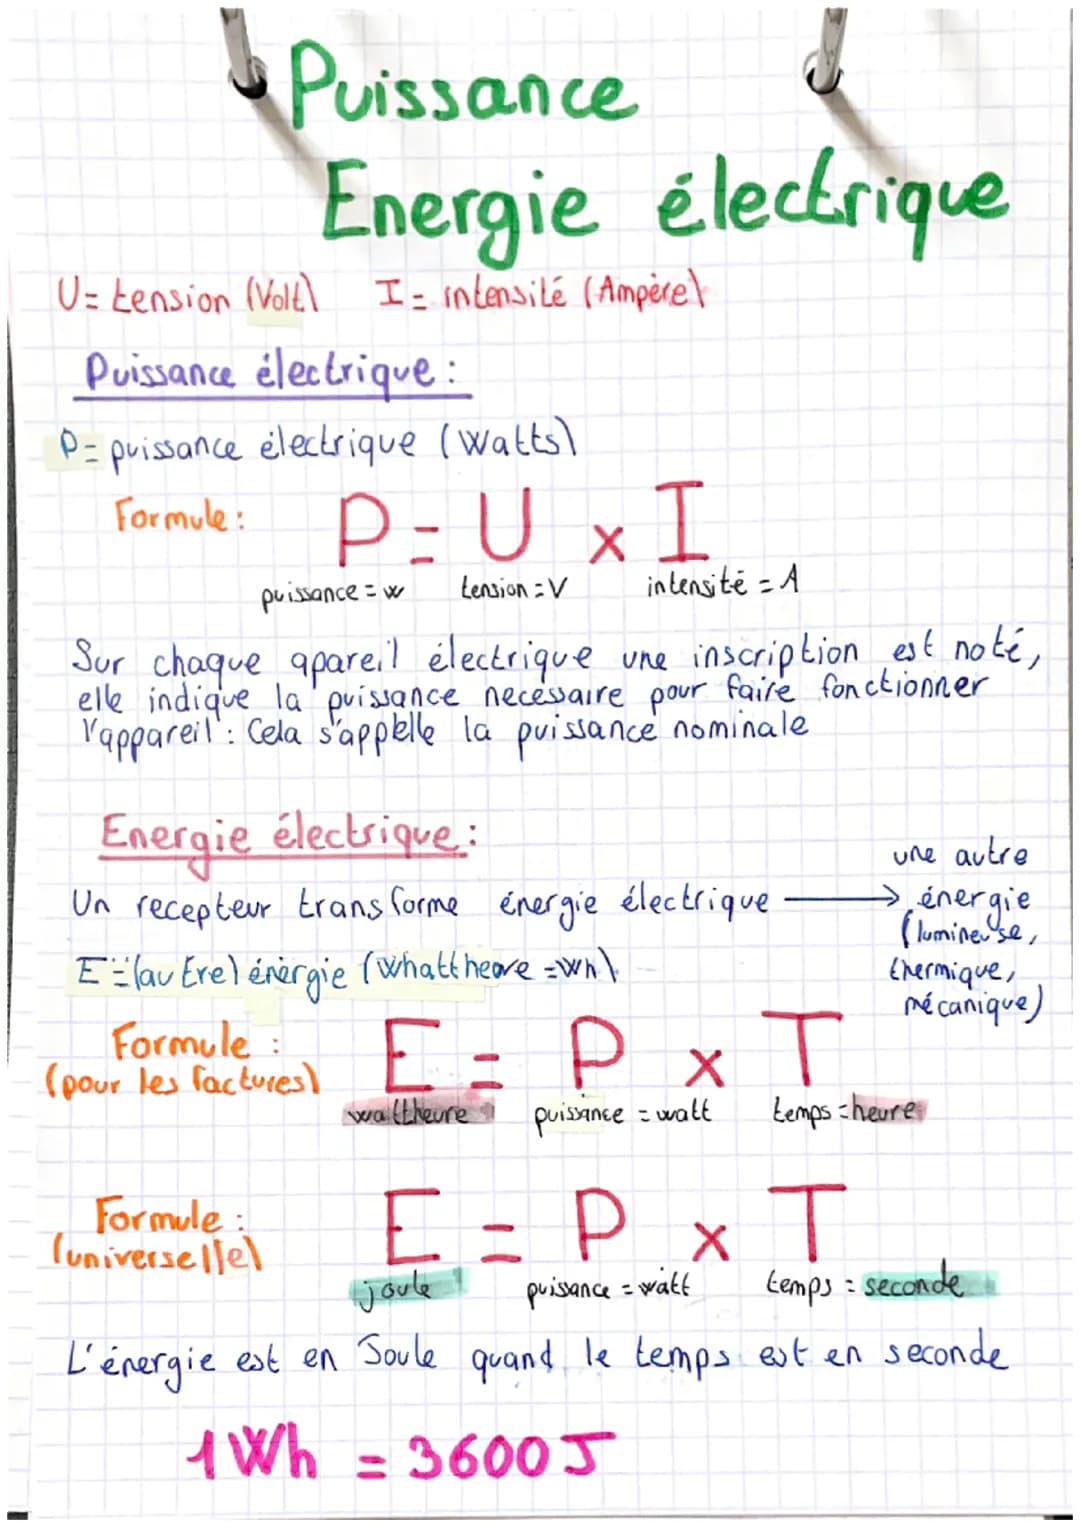 Puissance
Energie électrique
U= tension (Volt) I = intensité (Ampère)
Puissance électrique :
P= puissance électrique (Watts)
Formule : P = U x I
puissance = w tension = V intensité = A
Sur chaque apareil électrique une inscription est noté,
elle indique la puissance necessaire pour faire fonctionner
l'appareil : Cela s'appelle la puissance nominale
Energie électrique :
Un recepteur transforme énergie électrique → une autre
énergie
(lumineuse,
thermique,
mécanique)
E = (autre) énergie (Whattheore = Wh)
Formule :
(pour les factures)
E = P x T
wattheure puissance = watt temps = heure
Formule :
(universelle)
E = P x T
joule puissance = watt temps = seconde
L'énergie est en Joule quand le temps est en seconde
1Wh = 3600J